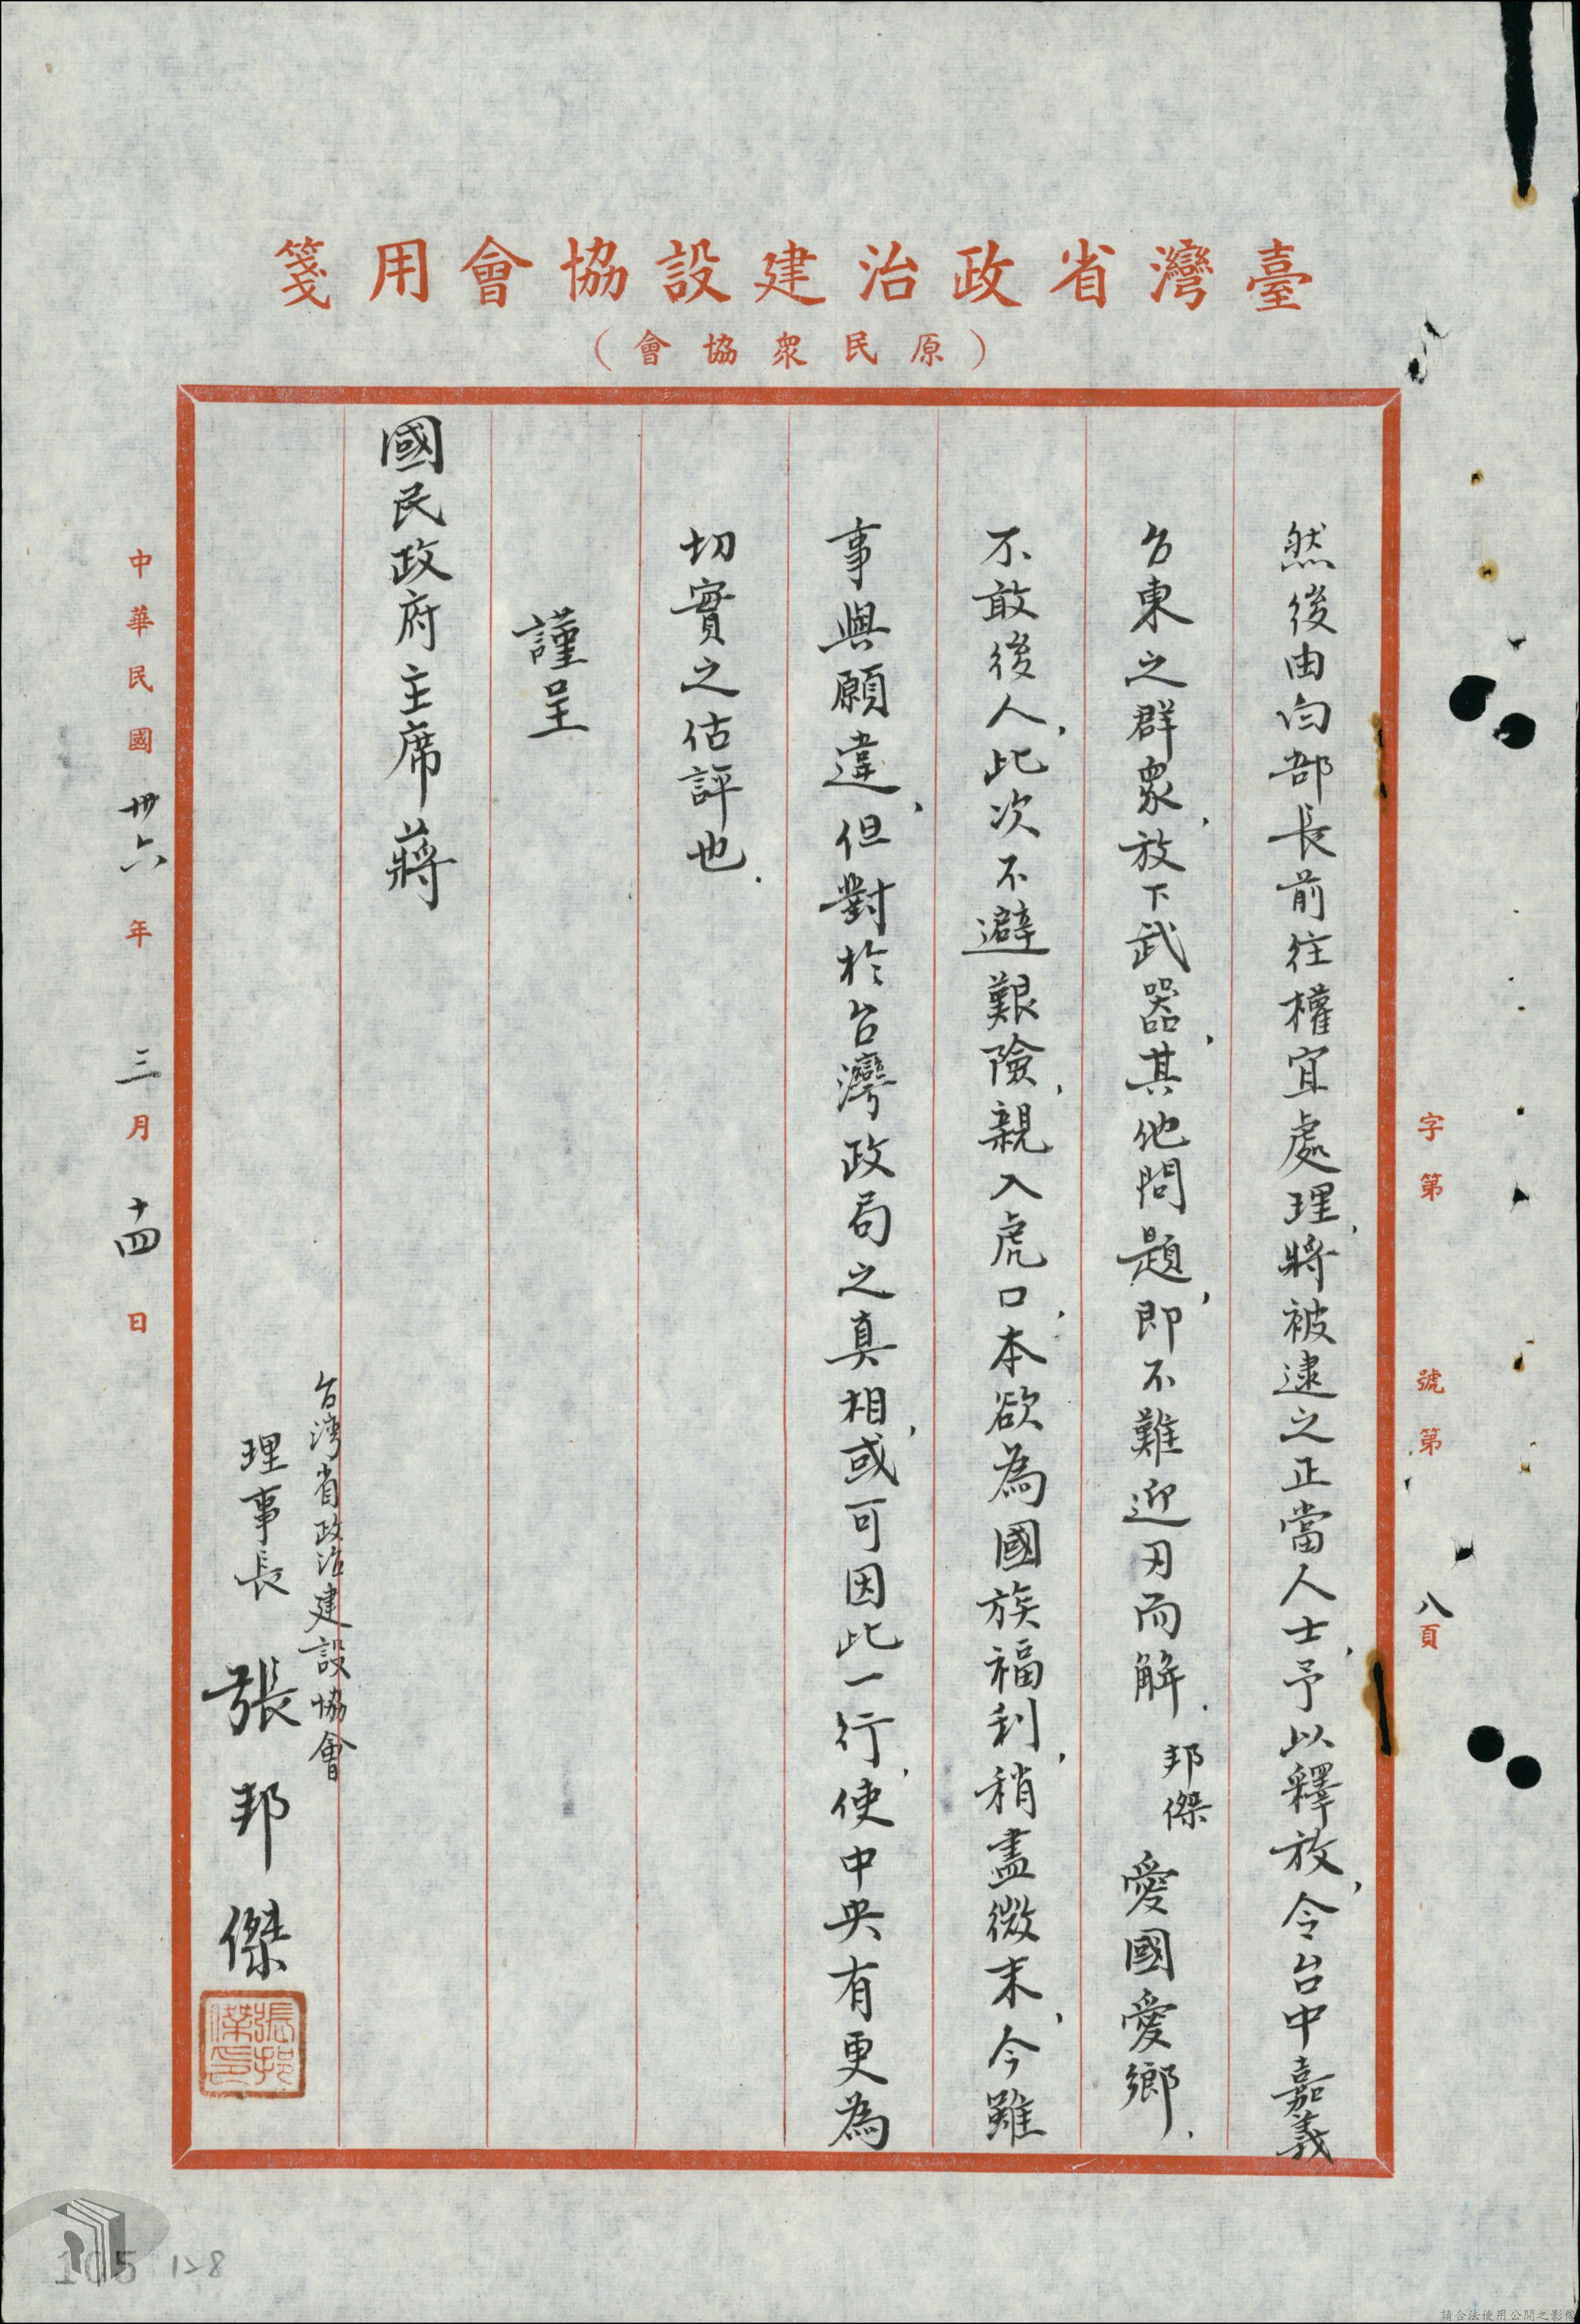 臺灣省政治建設協會用箋
（原民眾協會）
字第　號第八頁
然後由白部長前往權宜處理，將被逮之正當人士，予以釋放，令台中嘉義
台東之群眾，放下武器，其他問題，即不難迎刃而解．邦傑愛國愛鄉，
不敢後人，此次不避艱險，親入虎口，本欲為國族福利，稍盡微末，今雖
事與願違，但對於台灣政局之真相，或可因此一行，使中央有更為
切實之估評也．
謹呈
國民政府主席蔣
台灣省政治建設協會
理事長　張邦傑
張邦傑印
中華民國卅六年三月十四日
105 128
請合法使用公開之影像